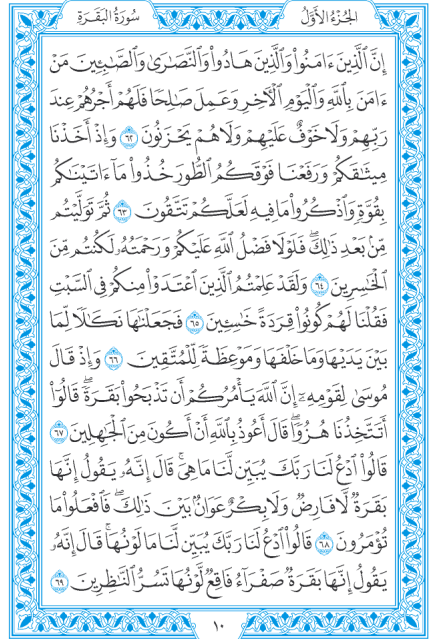 الجُزْءُ الأَوَّلُ
سُورَةُ البَقَرَةِ
إِنَّ ٱلَّذِينَ ءَامَنُواْ وَٱلَّذِينَ هَادُواْ وَٱلنَّصَٰرَىٰ وَٱلصَّٰبِـِٔينَ مَنْ
ءَامَنَ بِٱللَّهِ وَٱلْيَوْمِ ٱلْأٓخِرِ وَعَمِلَ صَٰلِحًا فَلَهُمْ أَجْرُهُمْ عِندَ
رَبِّهِمْ وَلَا خَوْفٌ عَلَيْهِمْ وَلَا هُمْ يَحْزَنُونَ ٦٢ وَإِذْ أَخَذْنَا
مِيثَٰقَكُمْ وَرَفَعْنَا فَوْقَكُمُ ٱلطُّورَ خُذُواْ مَآ ءَاتَيْنَٰكُم
بِقُوَّةٍ وَٱذْكُرُواْ مَا فِيهِ لَعَلَّكُمْ تَتَّقُونَ ٦٣ ثُمَّ تَوَلَّيْتُم
مِّنۢ بَعْدِ ذَٰلِكَۖ فَلَوْلَا فَضْلُ ٱللَّهِ عَلَيْكُمْ وَرَحْمَتُهُۥ لَكُنتُم مِّنَ
ٱلْخَٰسِرِينَ ٦٤ وَلَقَدْ عَلِمْتُمُ ٱلَّذِينَ ٱعْتَدَوْاْ مِنكُمْ فِي ٱلسَّبْتِ
فَقُلْنَا لَهُمْ كُونُواْ قِرَدَةً خَٰسِـِٔينَ ٦٥ فَجَعَلْنَٰهَا نَكَٰلًا لِّمَا
بَيْنَ يَدَيْهَا وَمَا خَلْفَهَا وَمَوْعِظَةً لِّلْمُتَّقِينَ ٦٦ وَإِذْ قَالَ
مُوسَىٰ لِقَوْمِهِۦٓ إِنَّ ٱللَّهَ يَأْمُرُكُمْ أَن تَذْبَحُواْ بَقَرَةًۖ قَالُوٓاْ
أَتَتَّخِذُنَا هُزُوًاۖ قَالَ أَعُوذُ بِٱللَّهِ أَنْ أَكُونَ مِنَ ٱلْجَٰهِلِينَ ٦٧
قَالُواْ ٱدْعُ لَنَا رَبَّكَ يُبَيِّن لَّنَا مَا هِيَۚ قَالَ إِنَّهُۥ يَقُولُ إِنَّهَا
بَقَرَةٌ لَّا فَارِضٌ وَلَا بِكْرٌ عَوَانٌۢ بَيْنَ ذَٰلِكَۖ فَٱفْعَلُواْ مَا
تُؤْمَرُونَ ٦٨ قَالُواْ ٱدْعُ لَنَا رَبَّكَ يُبَيِّن لَّنَا مَا لَوْنُهَاۚ قَالَ إِنَّهُۥ
يَقُولُ إِنَّهَا بَقَرَةٌ صَفْرَآءُ فَاقِعٌ لَّوْنُهَا تَسُرُّ ٱلنَّٰظِرِينَ ٦٩
١٠